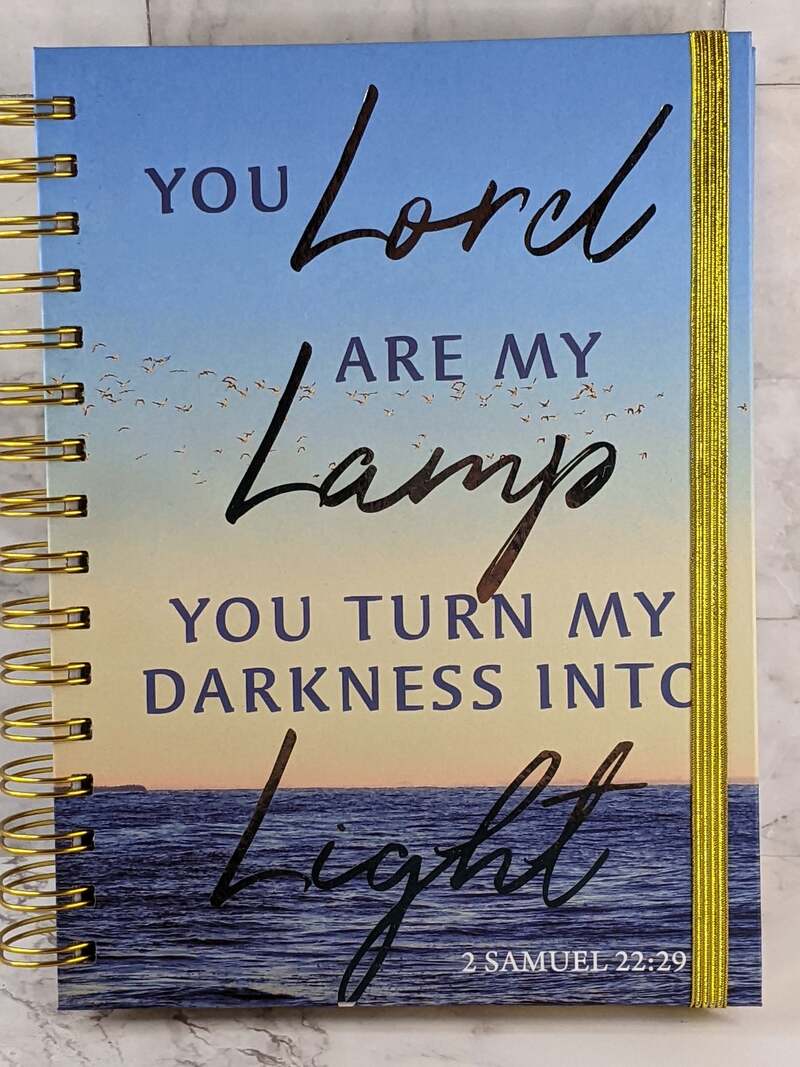 YOU Lord
ARE MY
Lamp
YOU TURN MY
DARKNESS INTO
Light
2 SAMUEL 22:29